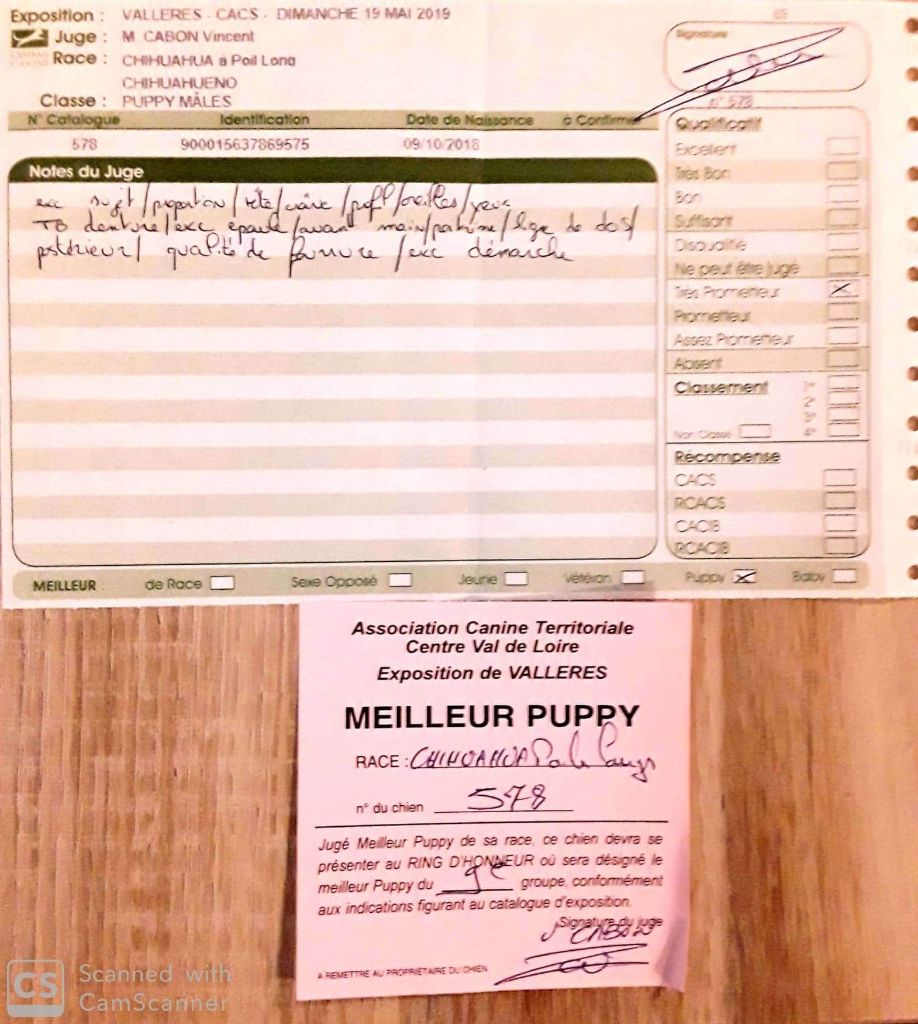 Exposition : VALLERES - CACS - DIMANCHE 19 MAI 2019
Juge : M. CABON Vincent
Race : CHIHUAHUA à Poil Long
CHIHUAHUENO
Classe : PUPPY MÂLES
Signature
n° 578
N° Catalogue Identification Date de Naissance à Confirmer
578 900015637869575 09/10/2018
Notes du Juge
exc sujet/proportion/tête/crâne/profil/oreilles/yeux
TB denture/exc épaule/avant main/poitrine/ligne de dos/
postérieur/ qualité de fourrure /exc démarche
Qualificatif
Excellent
Très Bon
Bon
Suffisant
Disqualifié
Ne peut être jugé
Très Prometteur
Prometteur
Assez Prometteur
Absent
Classement 1er
2e
3e
Non Classé 4e
Récompense
CACS
RCACS
CACIB
RCACIB
MEILLEUR : de Race Sexe Opposé Jeune Vétéran Puppy Baby
Association Canine Territoriale
Centre Val de Loire
Exposition de VALLERES
MEILLEUR PUPPY
RACE : CHIHUAHUA Poils Longs
n° du chien 578
Jugé Meilleur Puppy de sa race, ce chien devra se
présenter au RING D'HONNEUR où sera désigné le
meilleur Puppy du 9e groupe, conformément
aux indications figurant au catalogue d'exposition.
Signature du juge
CABON
A REMETTRE AU PROPRIÉTAIRE DU CHIEN
CS Scanned with
CamScanner